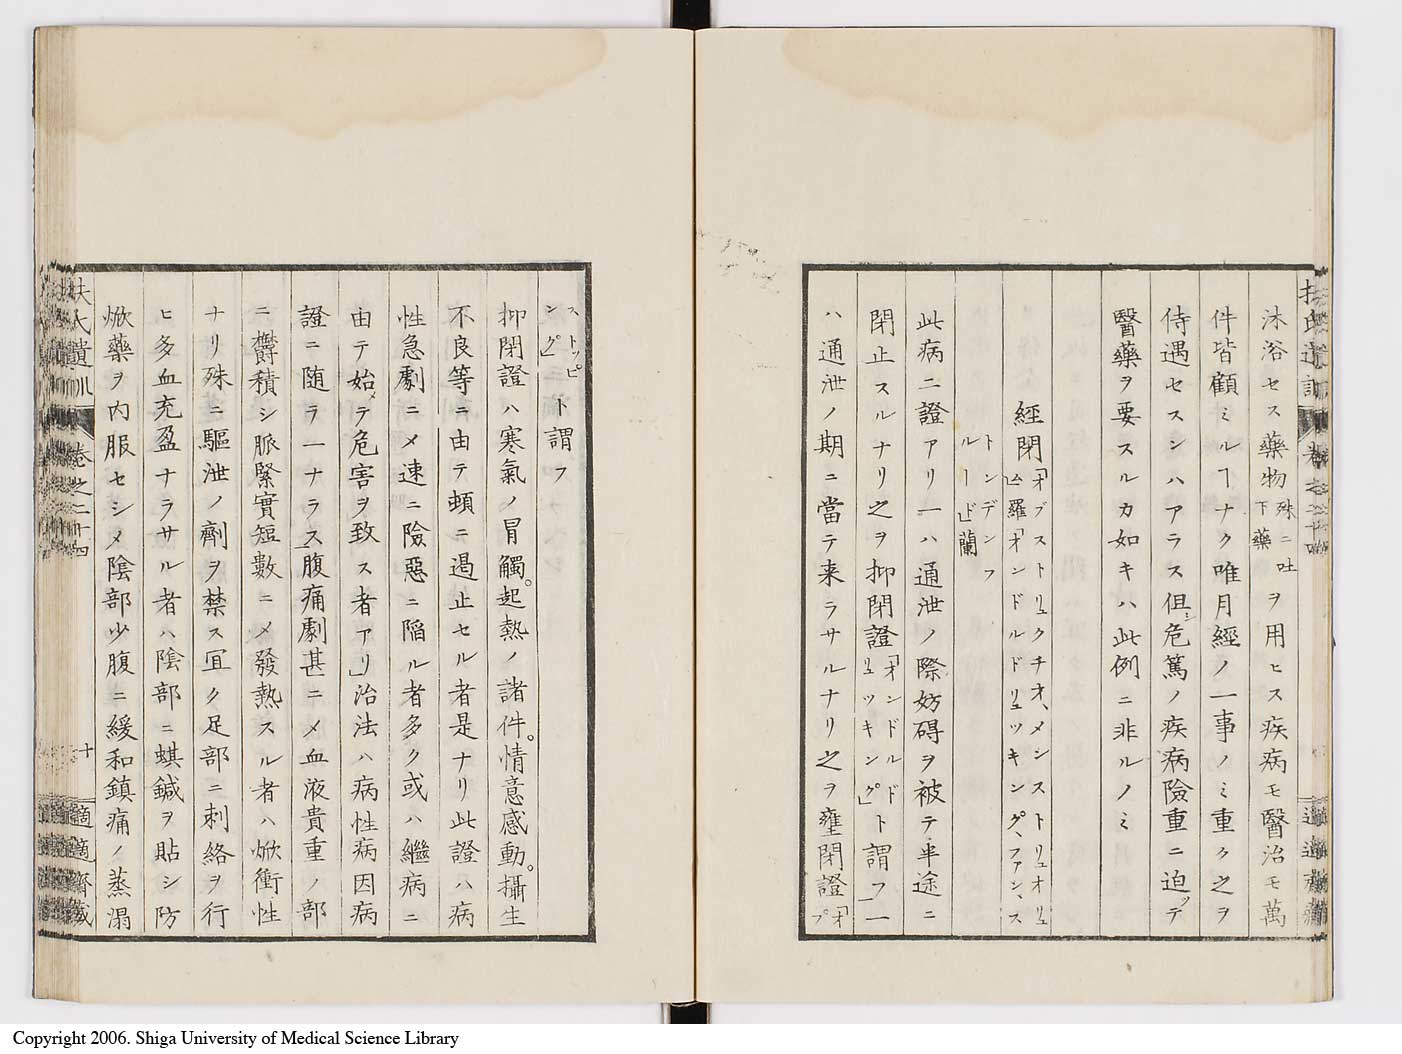 沐浴セス藥物殊ニ吐下藥ヲ用ヒス疾病モ醫治モ萬
件皆顧ミルヿナク唯月經ノ一事ノミ重ク之ヲ
侍遇セスンハアラス但シ危篤ノ疾病險重ニ迫ッテ
醫藥ヲ要スルカ如キハ此例ニ非ルノミ
經閉「オブストリュクチオ、メンストリュオリュム」羅「オンドルドリュッキング、ファン、ス
トンデンフルード」蘭
此病二證アリ一ハ通泄ノ際妨碍ヲ被テ半途ニ
閉止スルナリ之ヲ抑閉證「オンドルドリュッキング」ト謂フ一
ハ通泄ノ期ニ當テ来ラサルナリ之ヲ壅閉證「オプ
ストッピング」ト謂フ
抑閉證ハ寒氣ノ冒觸。起熱ノ諸件。情意感動。攝生
不良等ニ由テ頓ニ遏止セル者是ナリ此證ハ病
性急劇ニメ速ニ險惡ニ陷ル者多ク或ハ繼病ニ
由テ始メテ危害ヲ致ス者アリ」治法ハ病性病因病
證ニ随ヲ一ナラス」腹痛劇甚ニメ血液貴重ノ部
ニ欝積シ脈緊實短數ニメ發熱スル者ハ焮衝性
ナリ殊ニ驅泄ノ劑ヲ禁ス冝ク足部ニ刺絡ヲ行
ヒ多血充盈ナラサル者ハ陰部ニ蜞鍼ヲ貼シ防
焮藥ヲ内服セシメ陰部少腹ニ緩和鎮痛ノ蒸溻
扶氏遺訓 巻之二十四 十 適適齋藏